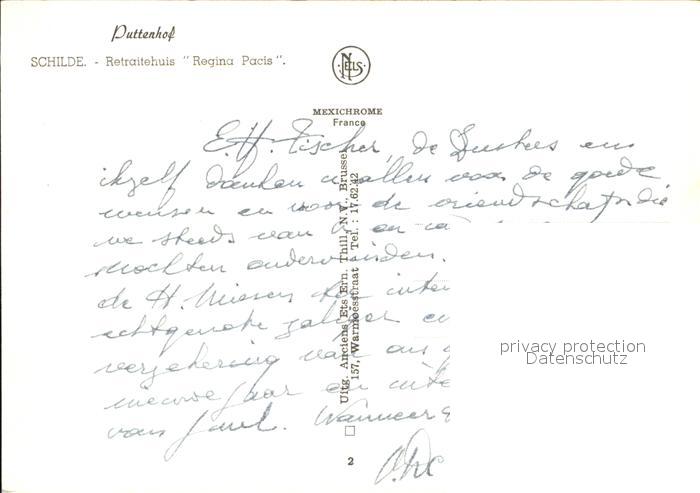 Puttenhof
SCHILDE. - Retraitehuis "Regina Pacis".
NELS
MEXICHROME
France
E.H. Tischer, de Zusters en
ikzelf danken u allen voor de goede
wensen en voor de vriendschap die
we steeds van U en
mochten ondervinden.
de H. Missen
echtgenote zaliger en
verzekering van ons
nieuwe jaar en
van Jaul. Wanneer
Uitg. Anciens Ets Ern. Thill, N.V., Brussel
157, Warmoesstraat Tel. : 17.62.42
2
privacy protection
Datenschutz